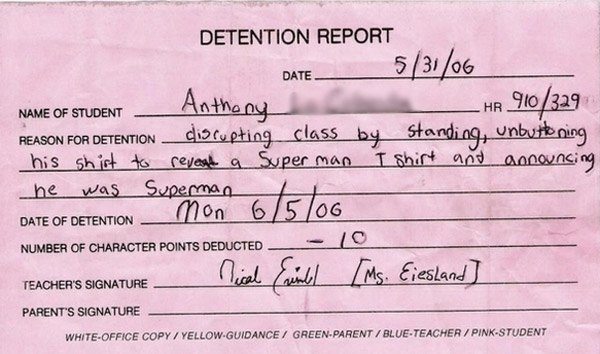 DETENTION REPORT
DATE 5/31/06
NAME OF STUDENT Anthony HR 910/329
REASON FOR DETENTION disrupting class by standing, unbuttoning
his shirt to reveal a Superman T shirt and announcing
he was Superman
DATE OF DETENTION Mon 6/5/06
NUMBER OF CHARACTER POINTS DEDUCTED -10
TEACHER'S SIGNATURE [Ms. Eiesland]
PARENT'S SIGNATURE
WHITE-OFFICE COPY / YELLOW-GUIDANCE / GREEN-PARENT / BLUE-TEACHER / PINK-STUDENT